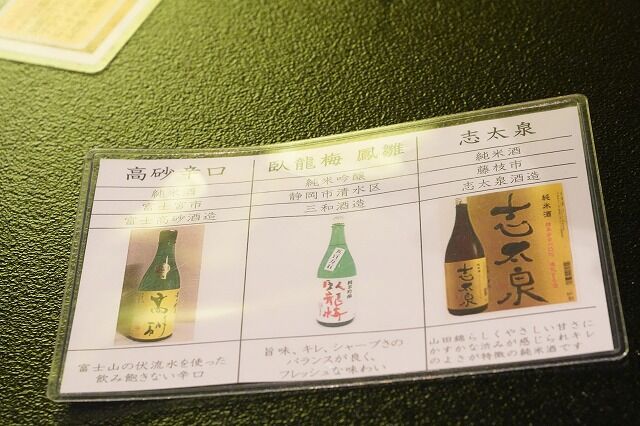 高砂辛口
純米酒
富士宮市
富士高砂酒造
高砂
富士山の伏流水を使った
飲み飽きない辛口
臥龍梅 鳳雛
純米吟醸
静岡市清水区
三和酒造
純米吟醸
臥龍梅
旨味、キレ、シャープさの
バランスが良く、
フレッシュな味わい
志太泉
純米酒
藤枝市
志太泉酒造
志太泉
純米酒
志太泉
山田錦らしくやさしい甘さに
かすかな渋みが感じられキレ
のよさが特徴の純米酒です